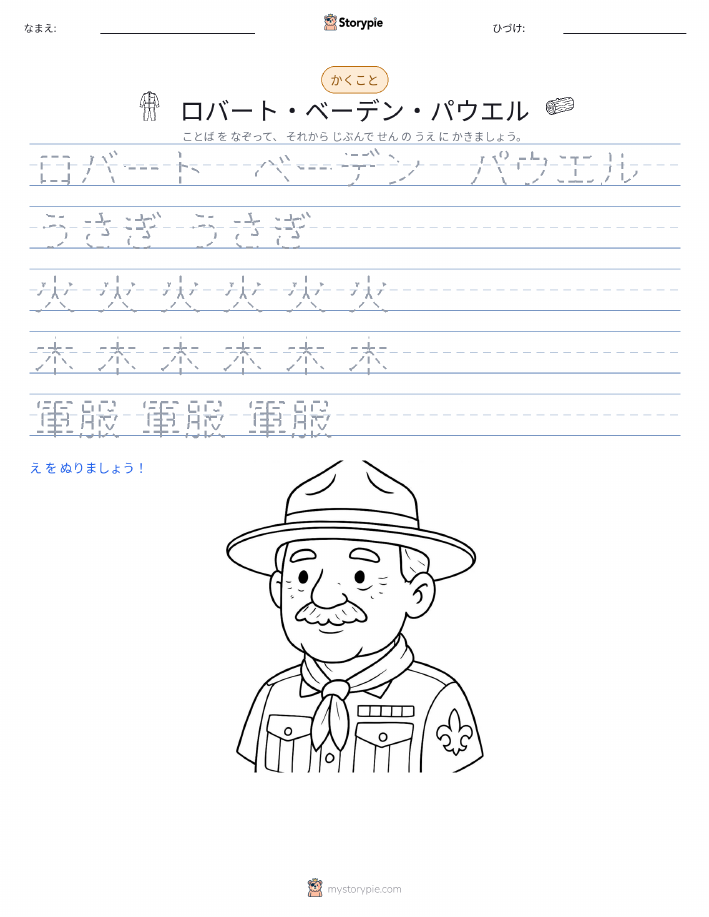 なまえ:
Storypie
ひづけ:
かくこと
ロバート・ベーデン・パウエル
ことば を なぞって、 それから じぶんで せん の うえ に かきましょう。
ロバート ベーデン パウエル
うさぎ うさぎ
火 火 火 火 火 火
木 木 木 木 木 木
軍服 軍服 軍服
え を ぬりましょう！
mystorypie.com